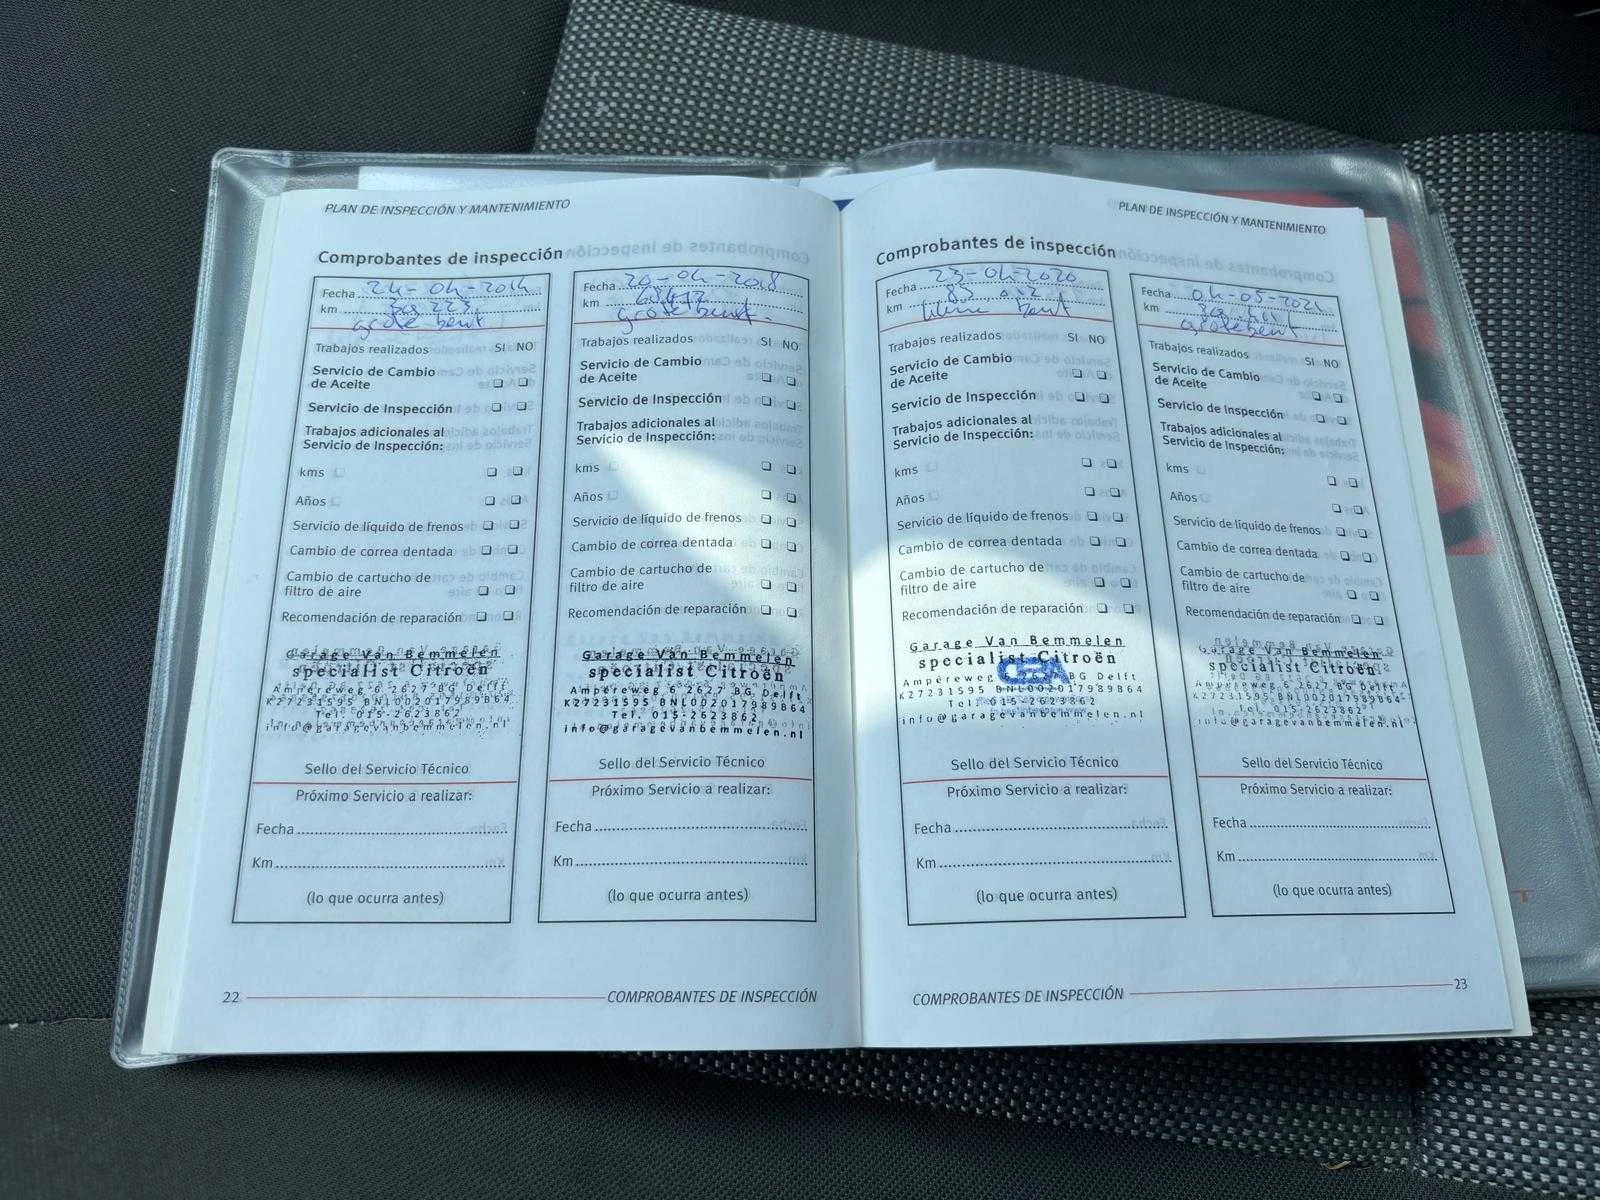 PLAN DE INSPECCIÓN Y MANTENIMIENTO
Comprobantes de inspección
Fecha 24-04-2014
km 223
grote beurt
Trabajos realizados SI NO
Servicio de Cambio
de Aceite
Servicio de Inspección
Trabajos adicionales al
Servicio de Inspección:
kms
Años
Servicio de líquido de frenos
Cambio de correa dentada
Cambio de cartucho de
filtro de aire
Recomendación de reparación
Garage Van Bemmelen
specialist Citroën
Ampèreweg 6 2627 BG Delft
K27231595 BNL002017989B64
Tel. 015-2623862
info@garagevanbemmelen.nl
Sello del Servicio Técnico
Próximo Servicio a realizar:
Fecha
Km
(lo que ocurra antes)
Fecha 20-04-2018
km
grote beurt
Trabajos realizados SI NO
Servicio de Cambio
de Aceite
Servicio de Inspección
Trabajos adicionales al
Servicio de Inspección:
kms
Años
Servicio de líquido de frenos
Cambio de correa dentada
Cambio de cartucho de
filtro de aire
Recomendación de reparación
Garage Van Bemmelen
specialist Citroën
Ampèreweg 6 2627 BG Delft
K27231595 BNL002017989B64
Tel. 015-2623862
info@garagevanbemmelen.nl
Sello del Servicio Técnico
Próximo Servicio a realizar:
Fecha
Km
(lo que ocurra antes)
22
COMPROBANTES DE INSPECCIÓN
PLAN DE INSPECCIÓN Y MANTENIMIENTO
Comprobantes de inspección
Fecha 23-04-2020
km
kleine beurt
Trabajos realizados SI NO
Servicio de Cambio
de Aceite
Servicio de Inspección
Trabajos adicionales al
Servicio de Inspección:
kms
Años
Servicio de líquido de frenos
Cambio de correa dentada
Cambio de cartucho de
filtro de aire
Recomendación de reparación
Garage Van Bemmelen
specialist Citroën
Ampèreweg 6 2627 BG Delft
K27231595 BNL002017989B64
Tel. 015-2623862
info@garagevanbemmelen.nl
Sello del Servicio Técnico
Próximo Servicio a realizar:
Fecha
Km
(lo que ocurra antes)
Fecha 04-05-2021
km
grote beurt
Trabajos realizados SI NO
Servicio de Cambio
de Aceite
Servicio de Inspección
Trabajos adicionales al
Servicio de Inspección:
kms
Años
Servicio de líquido de frenos
Cambio de correa dentada
Cambio de cartucho de
filtro de aire
Recomendación de reparación
Garage Van Bemmelen
specialist Citroën
Ampèreweg 6 2627 BG Delft
K27231595 BNL002017989B64
Tel. 015-2623862
info@garagevanbemmelen.nl
Sello del Servicio Técnico
Próximo Servicio a realizar:
Fecha
Km
(lo que ocurra antes)
COMPROBANTES DE INSPECCIÓN
23